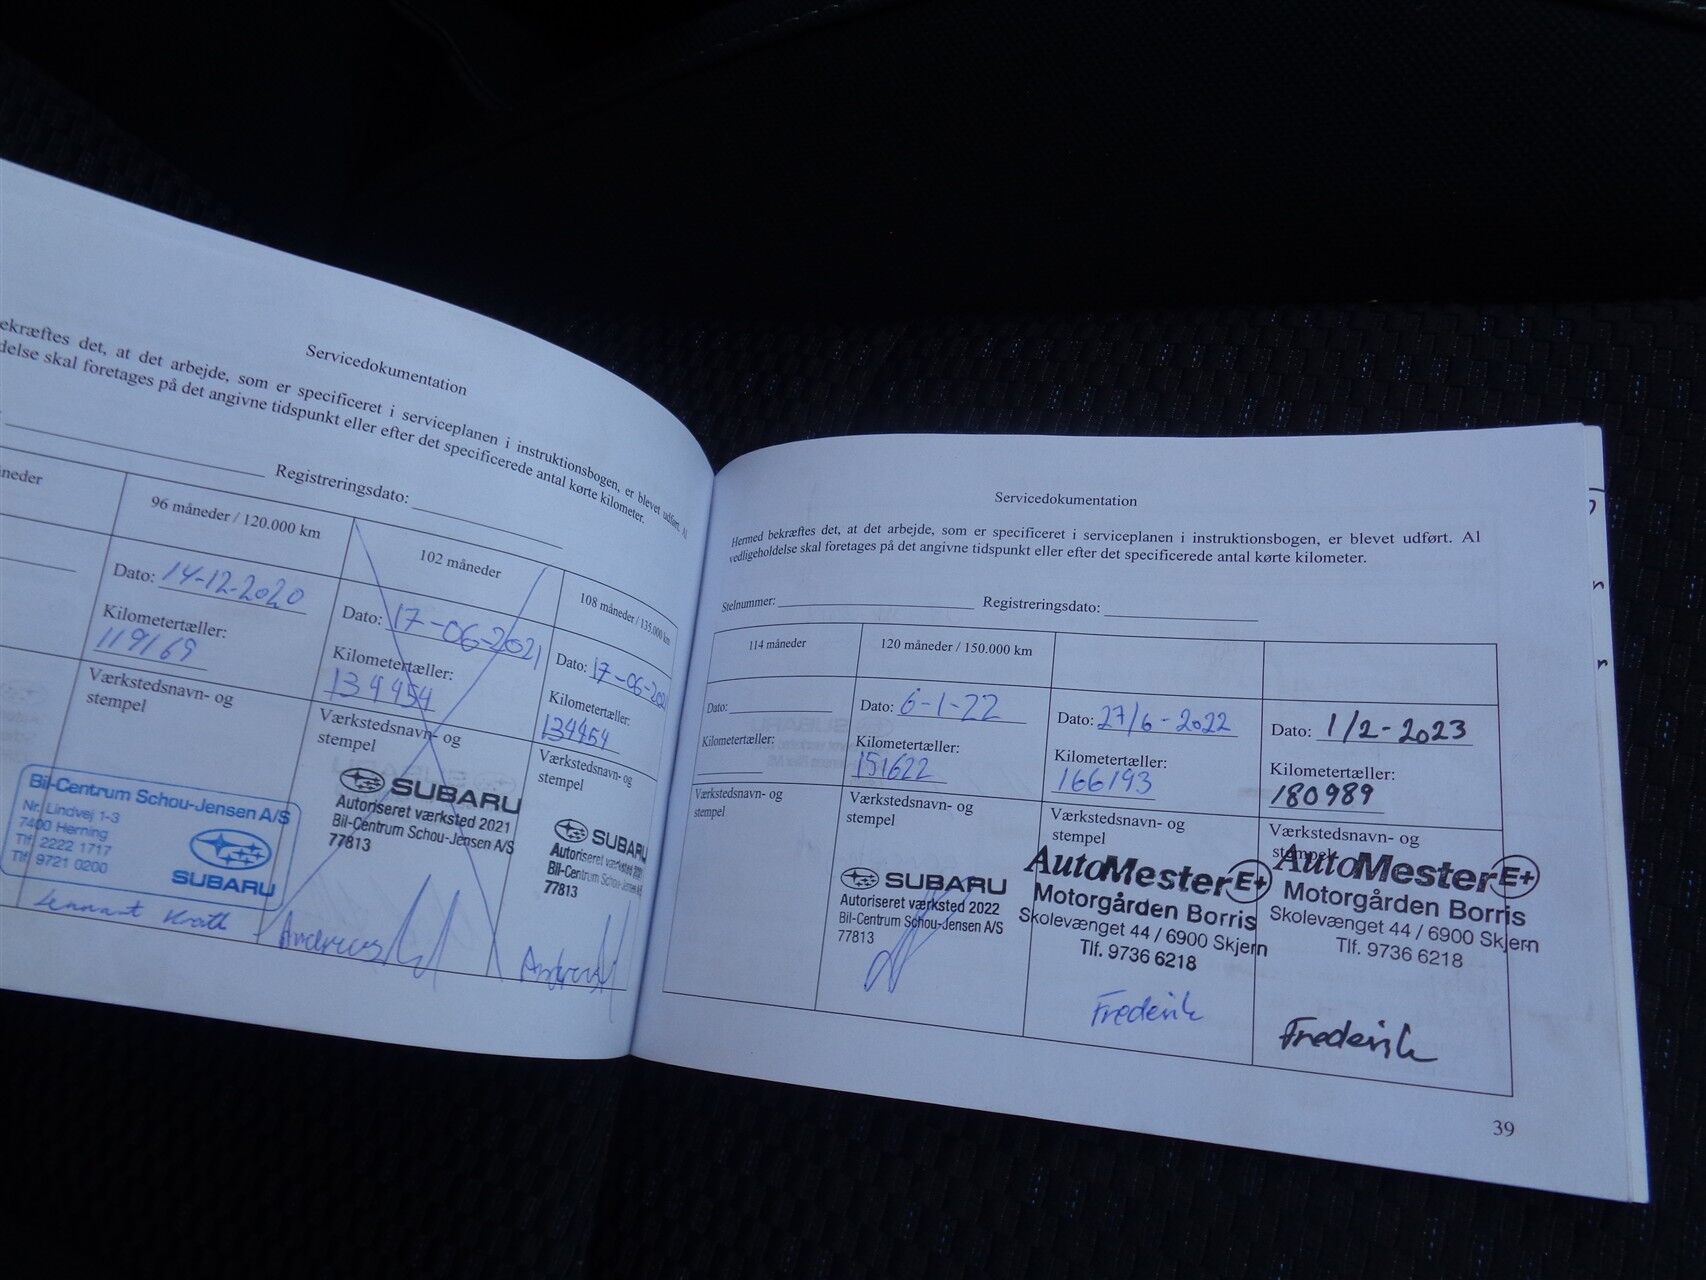 Servicedokumentation
ekræftes det, at det arbejde, som er specificeret i serviceplanen i instruktionsbogen, er blevet udført. Al
delse skal foretages på det angivne tidspunkt eller efter det specificerede antal kørte kilometer.
Registreringsdato:
neder
96 måneder / 120.000 km
Dato: 14-12-2020
Kilometertæller:
119169
Værkstedsnavn- og
stempel
Bil-Centrum Schou-Jensen A/S
Nr. Lindvej 1-3
7400 Herning
Tlf. 2222 1717
Tlf. 9721 0200
SUBARU
Lennart Krath
102 måneder
Dato: 17-06-2021
Kilometertæller:
134454
Værkstedsnavn- og
stempel
SUBARU
Autoriseret værksted 2021
Bil-Centrum Schou-Jensen A/S
77813
Andreas
108 måneder / 135.000 km
Dato: 17-06-202
Kilometertæller:
134454
Værkstedsnavn- og
stempel
SUBARU
Autoriseret værksted 2021
Bil-Centrum Schou-Jensen A/S
77813
Andreas
Servicedokumentation
Hermed bekræftes det, at det arbejde, som er specificeret i serviceplanen i instruktionsbogen, er blevet udført. Al
vedligeholdelse skal foretages på det angivne tidspunkt eller efter det specificerede antal kørte kilometer.
Stelnummer: Registreringsdato:
114 måneder
Dato:
Kilometertæller:
Værkstedsnavn- og
stempel
120 måneder / 150.000 km
Dato: 6-1-22
Kilometertæller:
151622
Værkstedsnavn- og
stempel
SUBARU
Autoriseret værksted 2022
Bil-Centrum Schou-Jensen A/S
77813
Dato: 27/6-2022
Kilometertæller:
166193
Værkstedsnavn- og
stempel
AutoMester E+
Motorgården Borris
Skolevænget 44 / 6900 Skjern
Tlf. 9736 6218
Frederik
Dato: 1/2-2023
Kilometertæller:
180989
Værkstedsnavn- og
stempel
AutoMester E+
Motorgården Borris
Skolevænget 44 / 6900 Skjern
Tlf. 9736 6218
Frederik
39